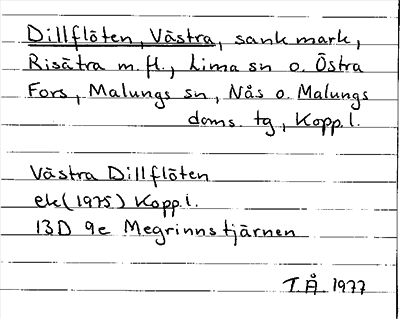 Dillflöten, Västra, sank mark,
Risätra m. fl., Lima sn o. Östra
Fors, Malungs sn, Nås o. Malungs
doms. tg, Kopp. l.
Västra Dillflöten
ek (1975) Kopp. l.
13D 9e Megrinnstjärnen
T. Å. 1977